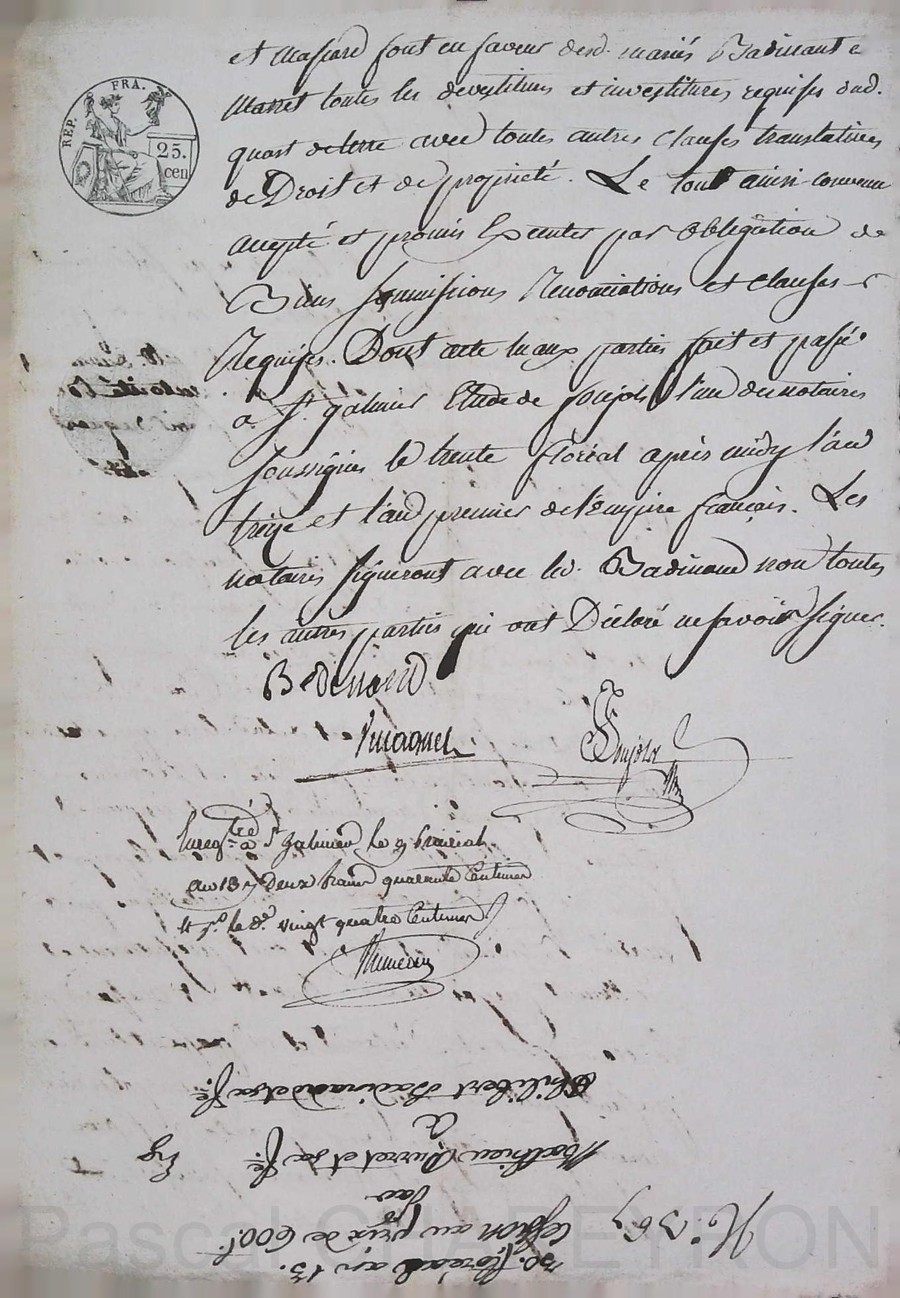 REP. FRA.
25.
cen
et masard font en faveur desd. mariés Badinant &
marret toutes les devestitures et investitures requises dud.
quart de terre avec toutes autres clauses translatives
de Droit et de propriété. Le tout ainsi convenu
accepté et promis Executer par obligation de
Biens soumissions Renonciations et clauses
Requises. Dont acte lu aux parties fait et passé
à St. galmier Etude de Soujols l'un des notaires
soussignés le trente floréal après midy l'an
treize et l'an premier de l'Empire français. Les
notaires signeront avec led. Badinand non toutes
les autres parties qui ont Déclaré ne savoir signer.
Bedinand
Soujols
Enregtré à St galmier le 9 prairial
an 13 deux francs quarante Centimes
et pr. le de. vingt quatre Centimes
30. floréal an 13.
Cession au prix de 600f.
par
Mathieu Durret et sa fe.
A
Philibert Badinand et sa fe.
N° 367
Eg
Pascal CHAPEYRON